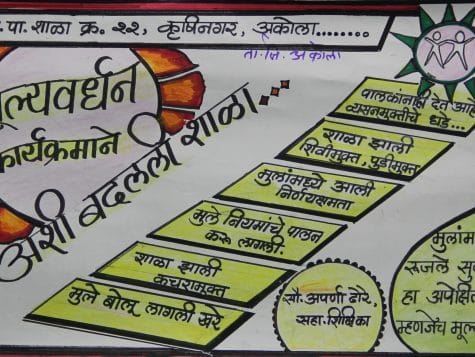 .पा.शाळा क्र.२२, कृषिनगर, अकोला........
ता.जि. अकोला
मूल्यवर्धन
कार्यक्रमाने
अशी बदलली शाळा...
पालकांनाही देते आ
व्यसनमुक्तीचे धडे...
शाळा झाली
शिवीमुक्त, पूडीमुक्त
मुलांमध्ये आली
निर्णयक्षमता
मुले नियमांचे पालन
करू लागली.
शाळा झाली
कचरामुक्त
मुले बोलू लागली खरे
सौ. अपर्णा ढोरे,
सहा. शिक्षिका
मुलांम
रूजले सु
हा अपेक्षि
म्हणजेच मूल